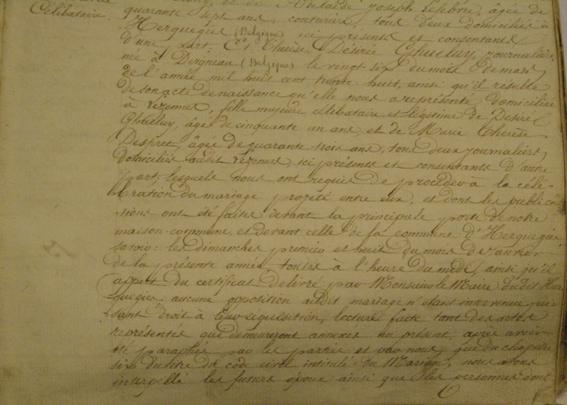 Célibataire. quarante sept ans, couturière, tous deux domiciliés à
Herquegies (Belgique) ici présents et consentants
d'une part; Et Désirée journalière,
née à (Belgique) le vingt six du mois de mars
de l'année mil huit cent trente huit, ainsi qu'il résulte
de son acte de naissance qu'elle nous a représenté, domiciliée
à fille majeure célibataire et légitime de
âgé de cinquante un ans, et de Marie Thérèse
Despret, âgée de quarante trois ans, tous deux journaliers,
domiciliés audit ici présents et consentants d'autre
part, lesquels nous ont requis de procéder à la célé-
bration du mariage projeté entre eux, et dont les publica-
tions ont été faites devant la principale porte de notre
maison commune et devant celle de la commune d'Herquegies
savoir: les dimanches premier et huit du mois de janvier
de la présente année, toutes à l'heure du midi, ainsi qu'il
appert du certificat délivré par Monsieur le Maire dudit Her-
quegies aucune opposition audit mariage n'étant intervenue, fai-
sant droit à leur réquisition, lecture faite tant des actes
représentés qui demeurent annexés au présent, après avoir
été paraphés par les parties et par nous, que du chapitre
six du titre du code civil intitulé du Mariage, nous avons
interpellé les futurs époux ainsi que les personnes dont